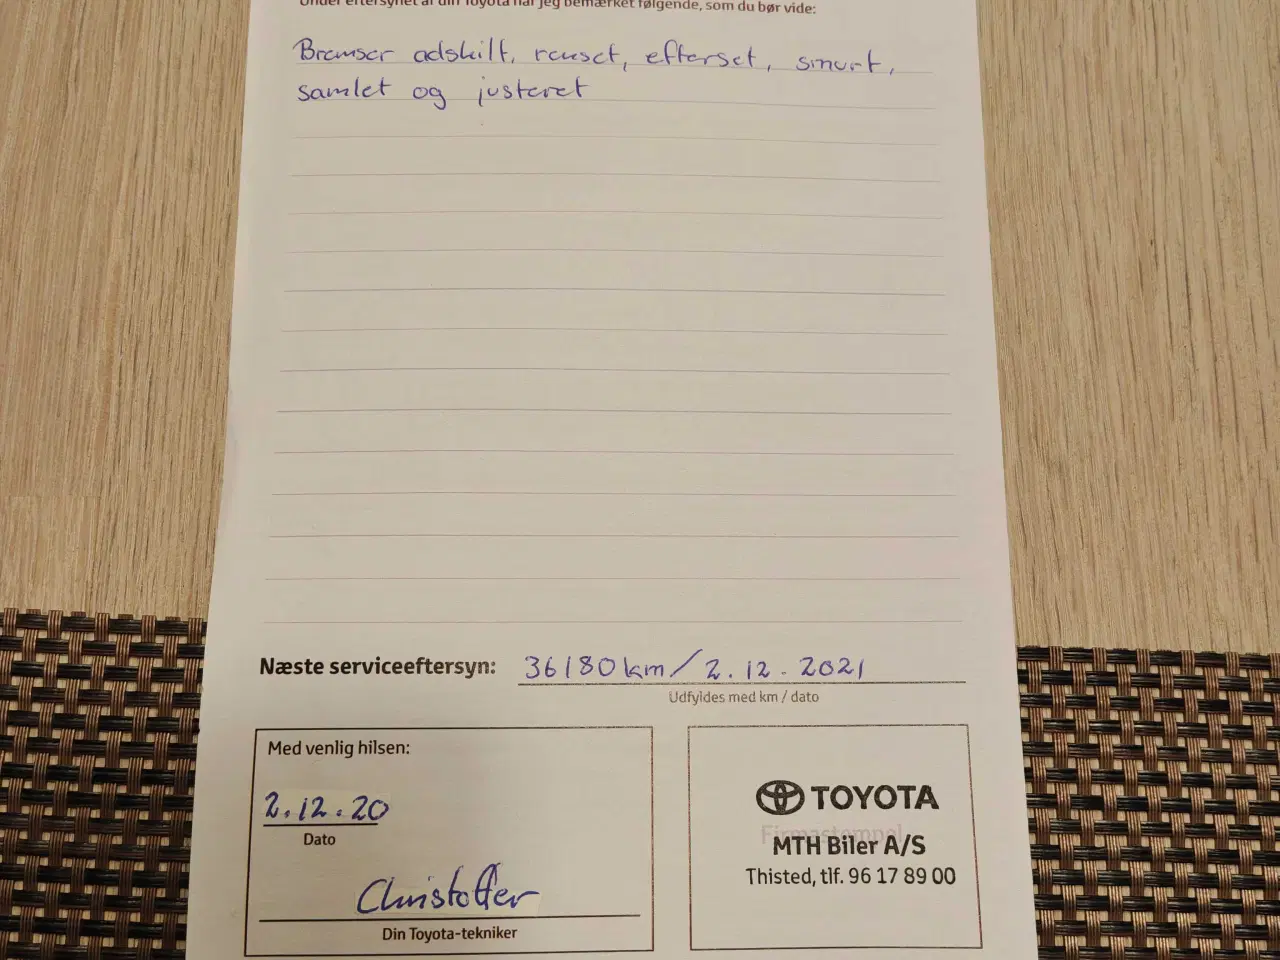 Under eftersynet af din Toyota har jeg bemærket følgende, som du bør vide:
Bremser adskilt, renset, efterset, smurt,
samlet og justeret
Næste serviceeftersyn: 36180 km / 2.12.2021
Udfyldes med km / dato
Med venlig hilsen:
2.12.20
Dato
Christoffer
Din Toyota-tekniker
TOYOTA
Firmastempel
MTH Biler A/S
Thisted, tlf. 96 17 89 00